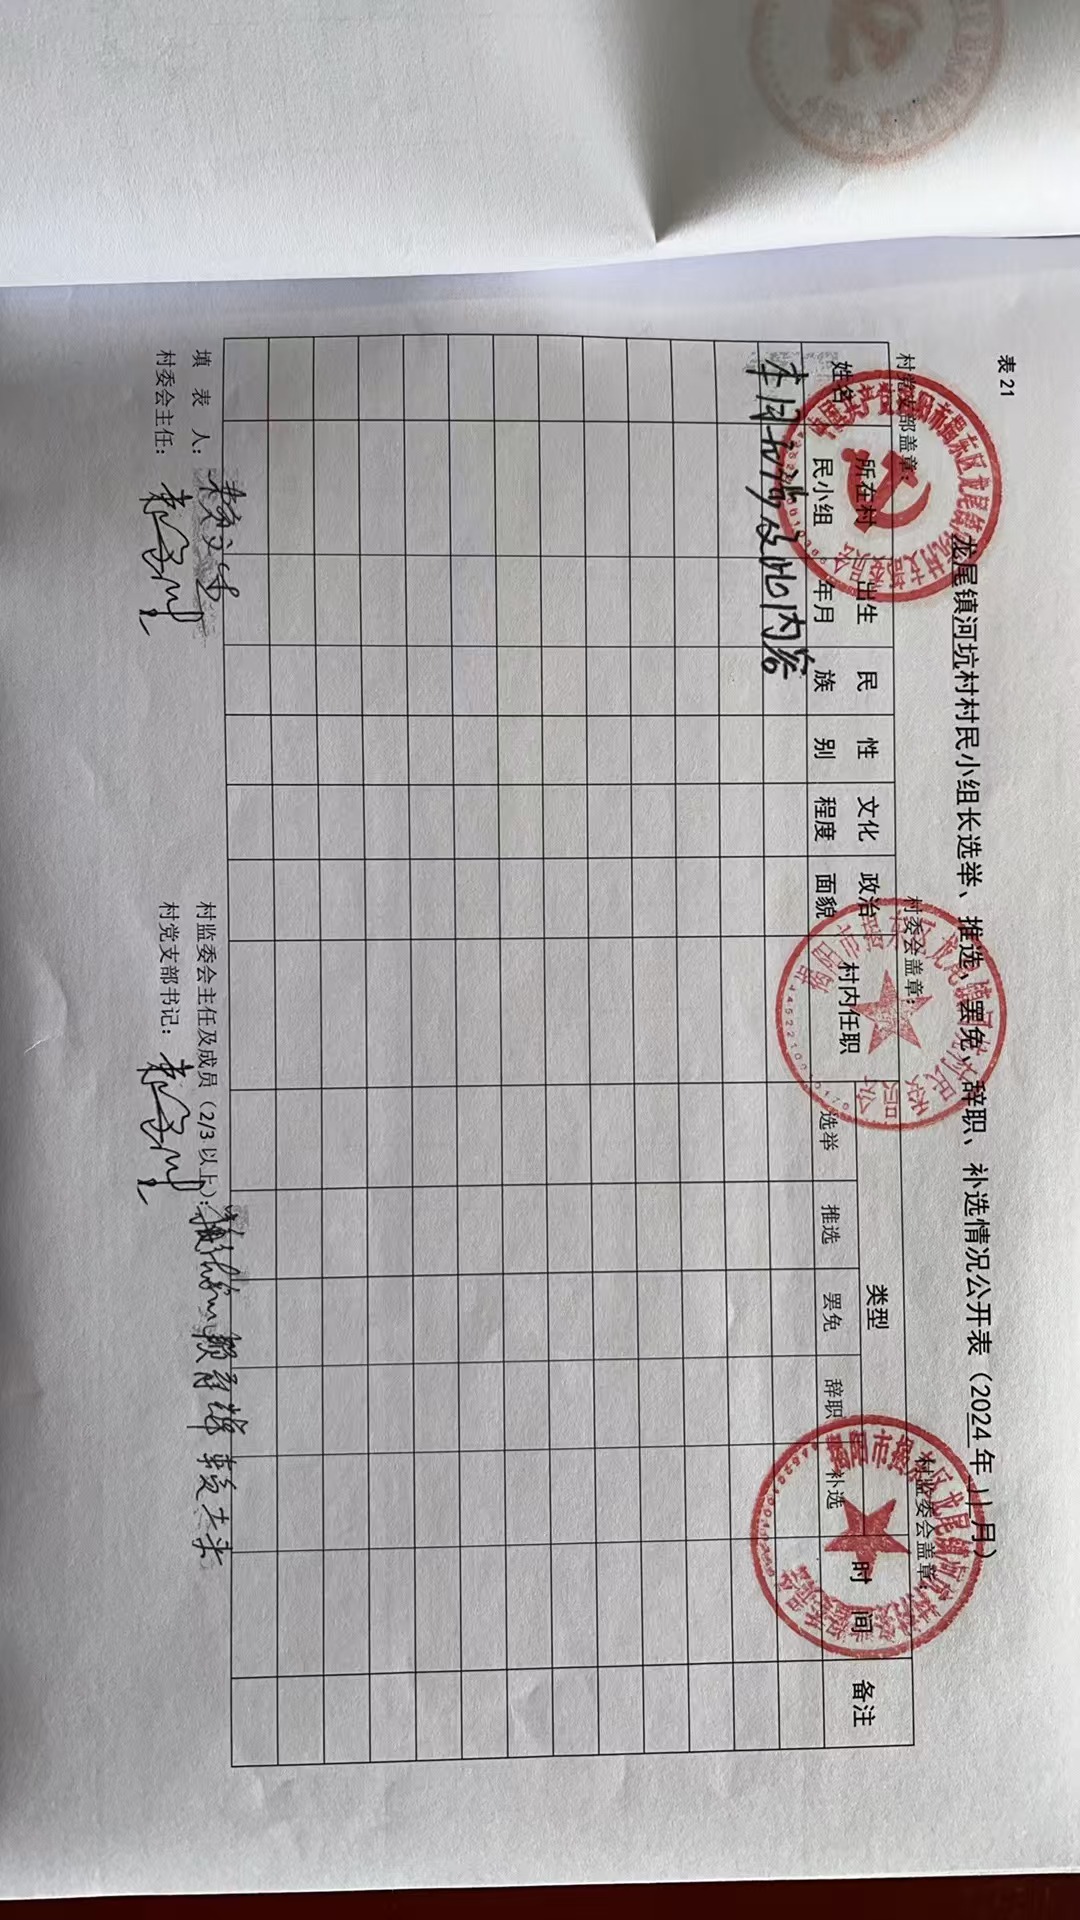 表21
龙尾镇河坑村村民小组长选举、推选、罢免、辞职、补选情况公开表（2024年11月）
村党支部盖章：
村委会盖章：
村监委会盖章：
姓名
所在村民小组
出生年月
民族
性别
文化程度
政治面貌
村内任职
类型
选举
推选
罢免
辞职
补选
时间
备注
本月无涉及此内容
填表人：
村监委会主任及成员（2/3以上）：
村委会主任：
村党支部书记：